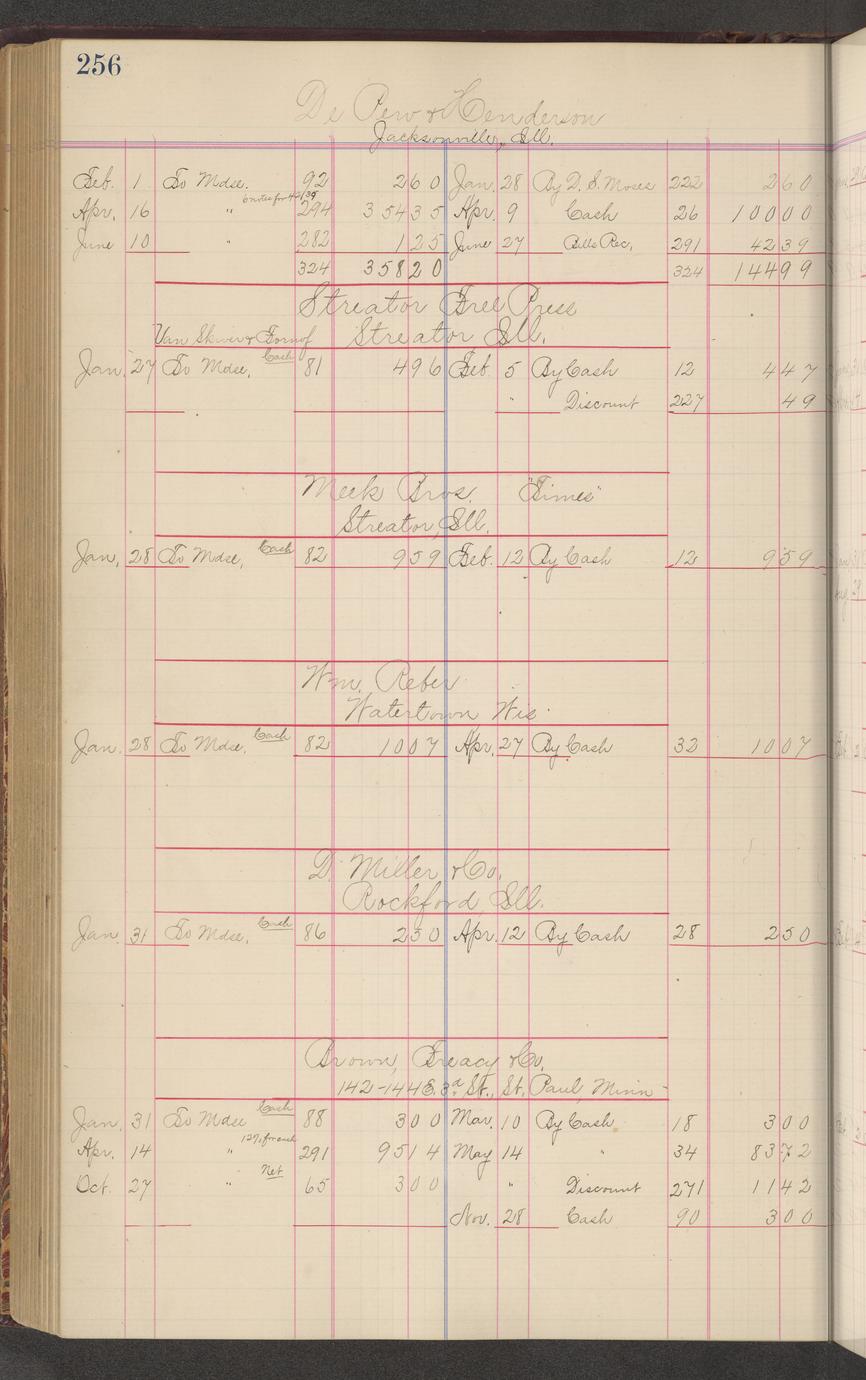 256
De Pew & Henderson
Jacksonville, Ill.
Feb. 1 To Mdse. 92 2 6 0 Jan. 28 By D. S. Moses 222 2 6 0
6 notes for 42/39
Apr. 16 " 294 3 5 4 3 5 Apr. 9 Cash 26 1 0 0 0 0
June 10 " 282 1 2 5 June 27 Bills Rec. 291 4 2 3 9
324 3 5 8 2 0 324 1 4 4 9 9
Streator Free Press
Van Skiver & Fornof Streator Ill.
Jan. 27 To Mdse, Cash 81 4 9 6 Feb. 5 By Cash 12 4 4 7
" Discount 227 4 9
Meek Bros. "Times"
Streator, Ill.
Jan. 28 To Mdse, Cash 82 9 5 9 Feb. 12 By Cash 12 9 5 9
Wm. Reber
Watertown Wis.
Jan. 28 To Mdse, Cash 82 1 0 0 7 Apr. 27 By Cash 32 1 0 0 7
D. Miller & Co.
Rockford Ill.
Jan. 31 To Mdse, Cash 86 2 5 0 Apr. 12 By Cash 28 2 5 0
Brown, Treacy & Co.
142-144 E. 3d St., St. Paul, Minn
Jan. 31 To Mdse Cash 88 3 0 0 Mar. 10 By Cash 18 3 0 0
Apr. 14 " 12% for cash 291 9 5 1 4 May 14 " 34 8 3 7 2
Oct. 27 " Net 65 3 0 0 " Discount 271 1 1 4 2
Nov. 28 Cash 90 3 0 0